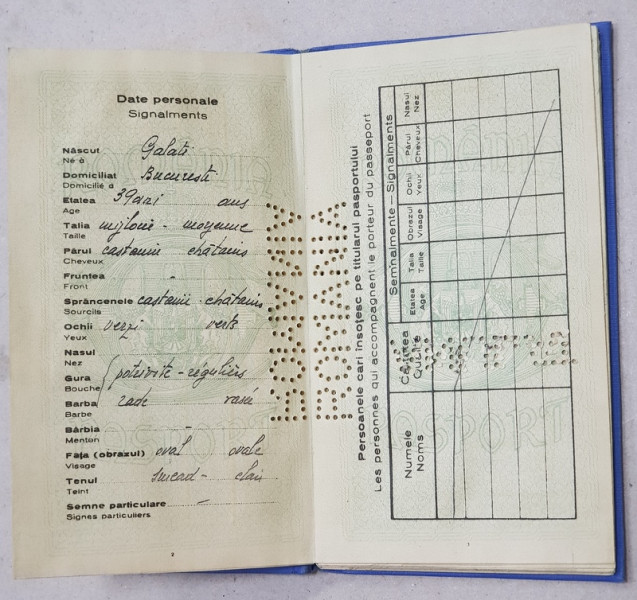 Date personale
Signalments
Născut Galati
Né à
Domiciliat Bucuresti
Domicilié à
Etatea 39 ani ans
Age
Talia mijlocie - moyenne
Taille
Părul castaniu châtains
Cheveux
Fruntea -
Front
Sprâncenele castanii - châtains
Sourcils
Ochii verzi verts
Yeux
Nasul
Nez
Gura potrivite - réguliers
Bouche
Barba rade rasée
Barbe
Bărbia -
Menton
Fața (obrazul) oval ovale
Visage
Tenul clair
Teint
Semne particulare -
Signes particuliers
2
ROMANIA
ROMANIA
Persoanele cari însoțesc pe titularul pasportului
Les personnes qui accompagnent le porteur du passeport
Numele
Noms
Calitatea
Qualité
Semnalmente — Signalments
Etatea
Age
Talia
Taille
Obrazul
Visage
Ochii
Yeux
Părul
Cheveux
Nasul
Nez